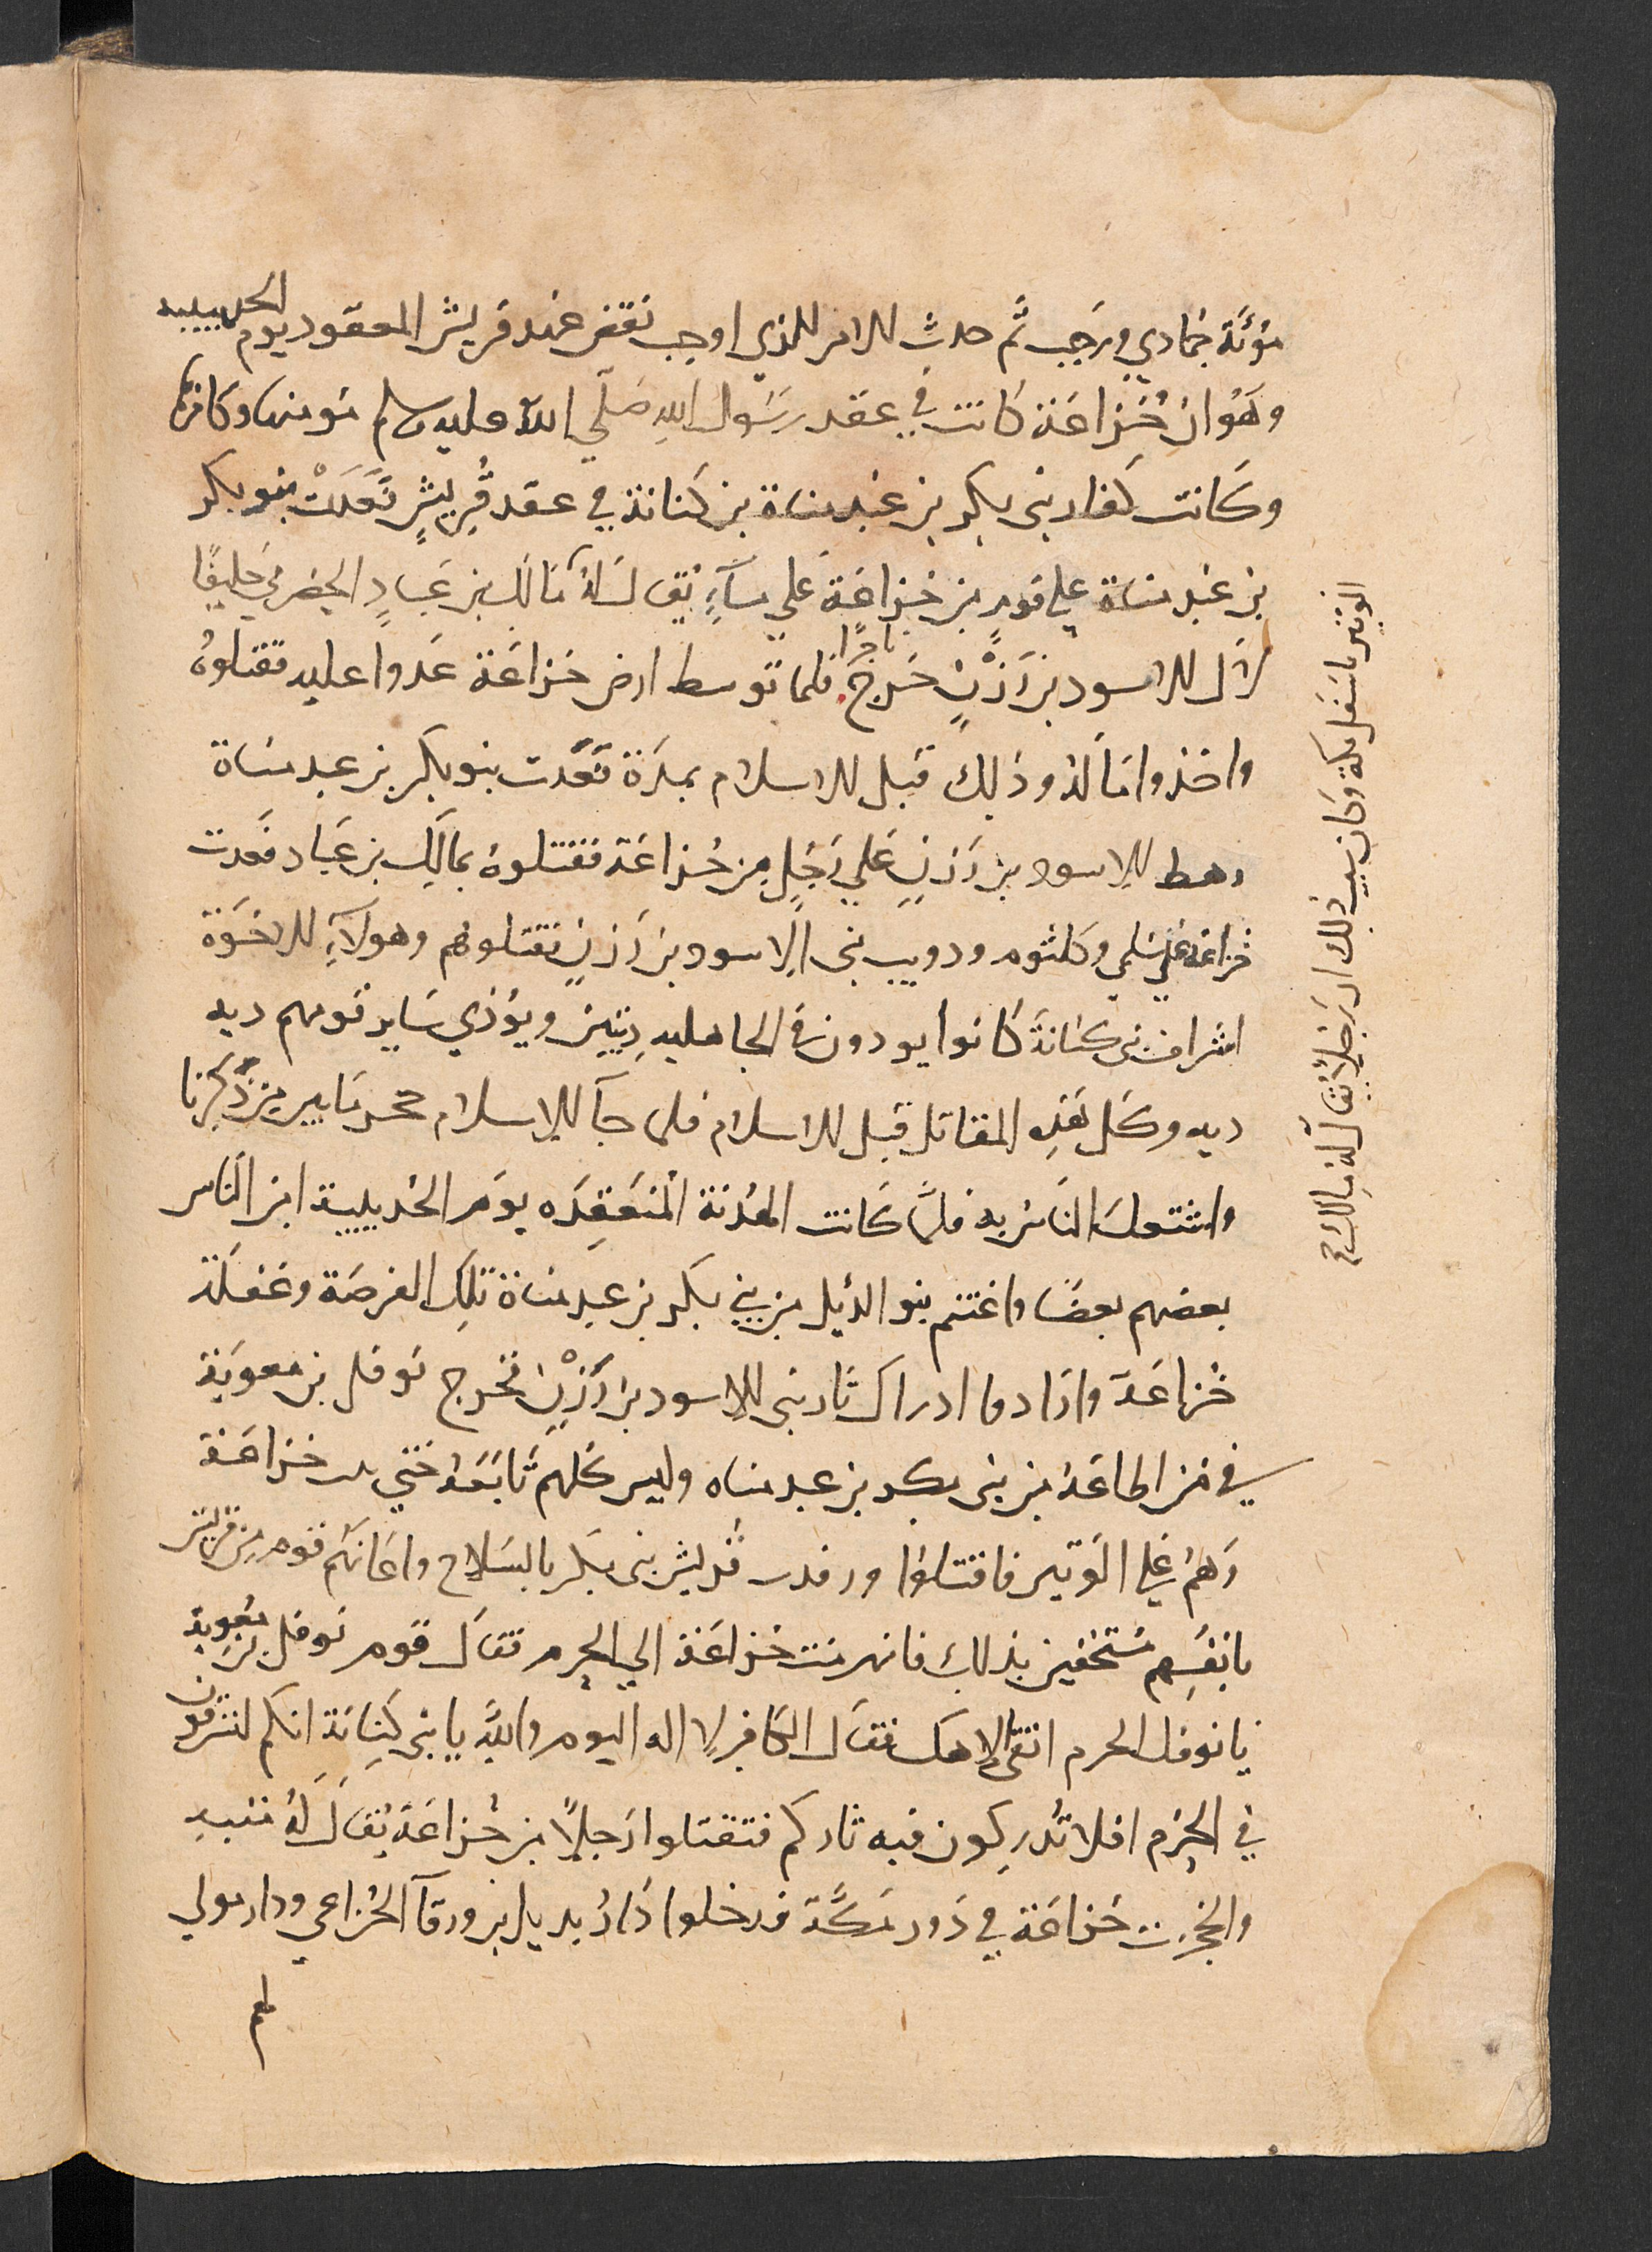 مؤتة جمادي ورجب ثم حدث الامر الذي اوجب نقض عهد قريش المعقود يوم الحديبية
وهو ان خزاعة كانت في عقد رسول الله صلي الله عليه وسلم مومنها وكافرها
وكانت كفار بني بكر بن عبد مناة بن كنانة في عقد قريش فعدت بنو بكر
بن عبد مناة علي قوم من خزاعة علي ماء يقال له
الوتير باسفل مكة وكان سبب ذلك ان رجلا يقال له مالك صح
مالك بن عباد الحضرمي حليفا
لال الاسود بن رزن خرج تاجرا فلما توسط ارض خزاعة عدوا عليه فقتلوه
واخذوا ماله وذلك قبل الاسلام بمدة فعدت بنو بكر بن عبد مناة
رهط الاسود بن رزن علي رجل من خزاعة فقتلوه بمالك بن عباد فعدت
خزاعة علي سلمي وكلثوم ودويب بني الاسود بن رزن فقتلوهم وهولاء الاخوة
اشراف بني كنانة كانوا يودون في الجاهلية ديتين ويؤدي ساير قومهم ديه
ديه وكل هذه المقاتل قبل الاسلام فلما جآ الاسلام حجز ما بين من ذكرنا
واشتغل الناس به فلما كانت الهدنة المنعقده يوم الحديبية امن الناس
بعضهم بعضا واغتنم بنو الديل من بني بكر بن عبد مناة تلك الفرصة وغفلة
خزاعة وارادوا ادراك ثار بني الاسود بن رزن فخرج نوفل بن معوية
في من اطاعه من بني بكر بن عبد مناه وليس كلهم تابعه حتي بيت خزاعة
وهم علي الوتير فاقتتلوا ورفدت قريش بني بكر بالسلاح واعانهم قوم من قريش
بانفسهم مستخفين بذلك فانهزمت خزاعة الي الحرم فقال قوم نوفل بن معوية
يا نوفل الحرم اتق الاهك فقال الكافر لا اله اليوم والله يا بني كنانة انكم لتسرقون
في الحرم افلا تدركون فيه ثاركم فتقتلوا رجلا من خزاعة يقال له منبه
وانحجزت خزاعة في دور مكة فدخلوا دار بديل بن ورقآ الخزاعي ودار مولي
لهم